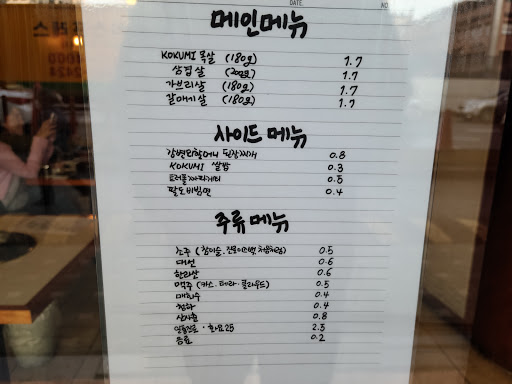 DATE. NO
메인메뉴
KOKUMI 목살 (180g) 1.7
삼겹살 (200g) 1.7
가브리살 (180g) 1.7
갈매기살 (180g) 1.7
사이드 메뉴
된장찌개 0.8
KOKUMI 쌀밥 0.3
트러플짜파게티 0.5
팔도비빔면 0.4
주류 메뉴
소주 (참이슬, 진로이즈백, 처음처럼) 0.5
대선 0.6
한라산 0.6
맥주 (카스, 테라, 클라우드) 0.5
매화수 0.4
청하 0.4
산사춘 0.8
일품진로 · 화요25 2.3
음료 0.2